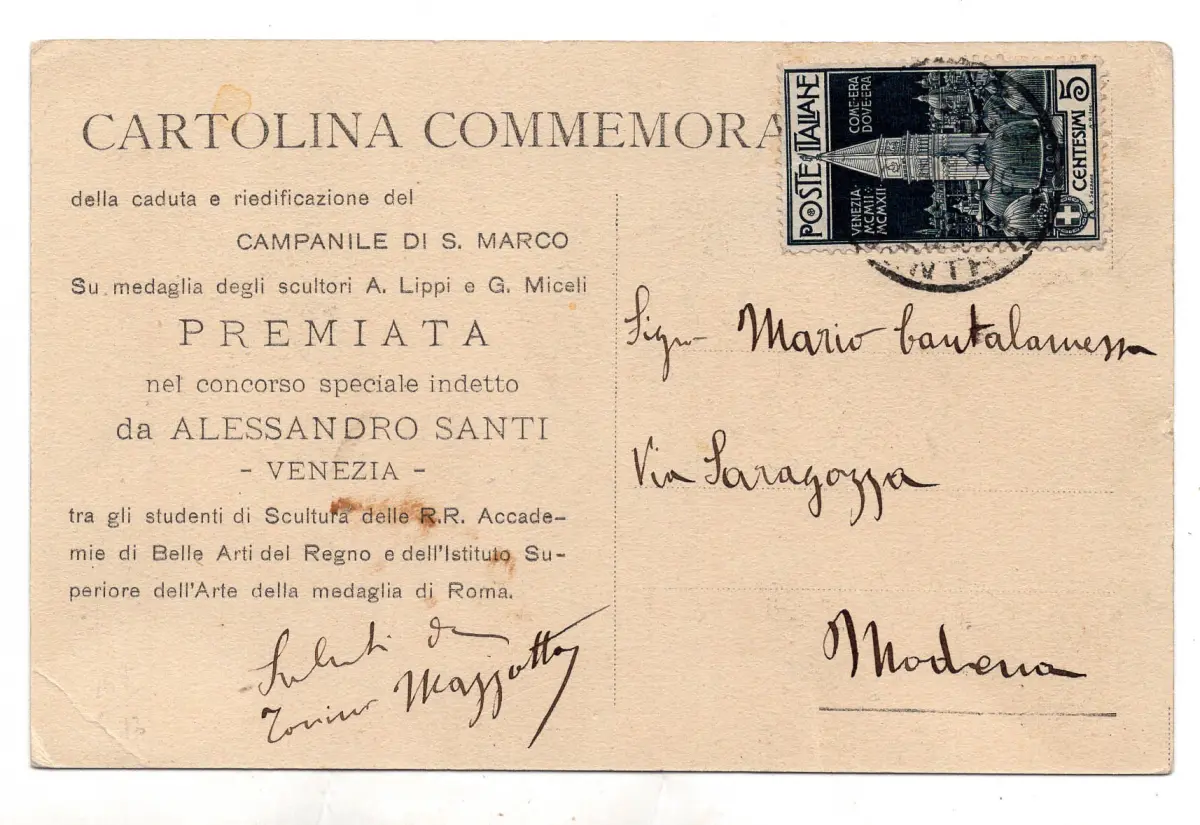 CARTOLINA COMMEMORA
della caduta e riedificazione del
CAMPANILE DI S. MARCO
Su medaglia degli scultori A. Lippi e G. Miceli
PREMIATA
nel concorso speciale indetto
da ALESSANDRO SANTI
- VENEZIA -
tra gli studenti di Scultura delle R.R. Accade-
mie di Belle Arti del Regno e dell'Istituto Su-
periore dell'Arte della medaglia di Roma.
Saluti da
Tonino Mazzotto
POSTE ITALIANE
COM'ERA
DOV'ERA
VENEZIA
MCMII
MCMXII
CENTESIMI 5
Sign Mario Cantalamessa
Via Saragozza
Modena